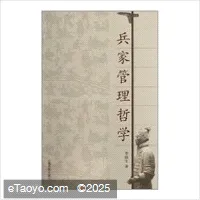 兵家管理哲学
eTaoyo.com ©2025